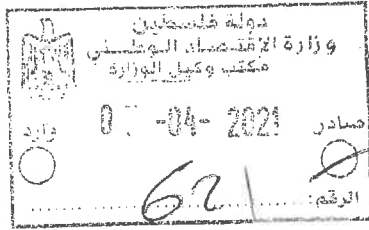 دولة فلسطين
وزارة الاقتصاد الوطني
مكتب وكيل الوزارة
-04- 2021
صادر وارد
الرقم: 62